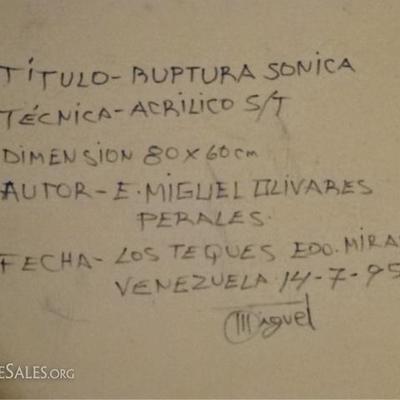 TÍTULO-RUPTURA SONICA
TÉCNICA-ACRILICO S/T
DIMENSION 80X60cm
AUTOR-E.MIGUEL OLIVARES
PERALES.
FECHA-LOS TEQUES EDO.MIRA
VENEZUELA.14-7-95
Miguel
ESALES.ORG